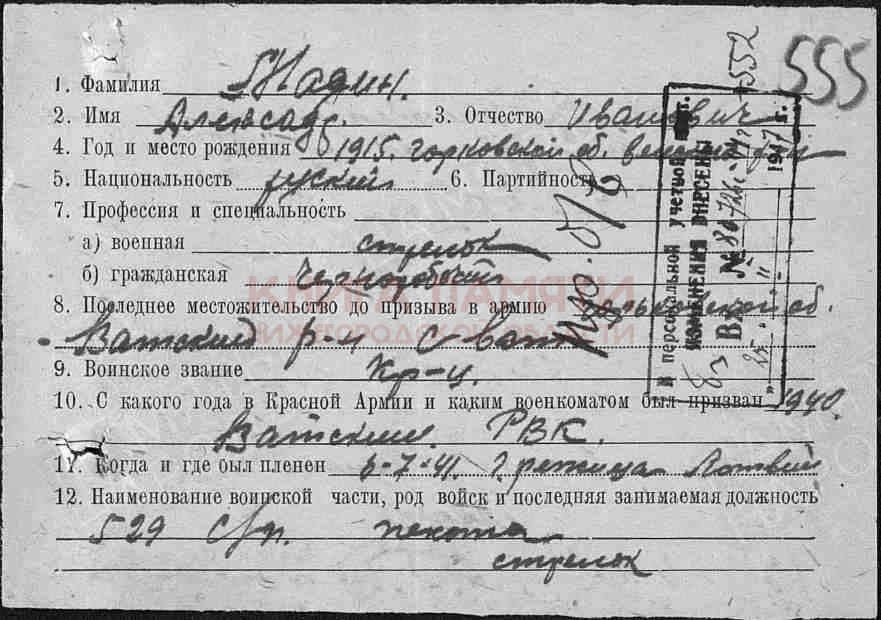 555
1. Фамилия
2. Имя Александр. 3. Отчество Иванович
4. Год и место рождения 1915. горковской об.
5. Национальность руский 6. Партийность
7. Профессия и специальность
а) военная стрелок
б) гражданская Чернорабочий
КНИГА ПАМЯТИ
8. Последнее местожительство до призыва в армию об.
НИЖЕГОРОДСКОЙ ОБЛАСТИ
Ватский р-н с
9. Воинское звание кр-ц.
10. С какого года в Красной Армии и каким военкоматом был призван 1940.
Ватский РВК.
11. Когда и где был пленен 6-7-41. г. режица Латвий
12. Наименование воинской части, род войск и последняя занимаемая должность
529 с/п. пехота
стрелок
В персональной учетной
ИЗМЕНЕНИЯ ВНЕСЕНЫ
Вх №
1947 г.